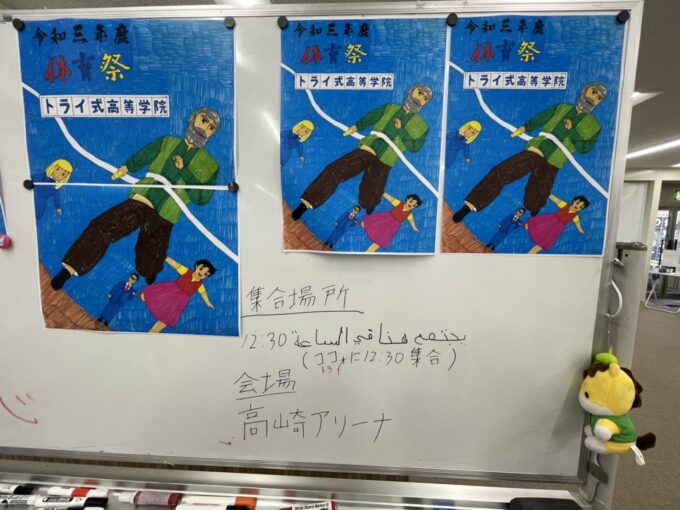 令和三年度
体育祭
トライ式高等学院
令和三年度
体育祭
トライ式高等学院
令和三年度
体育祭
トライ式高等学院
集合場所
يجتمع هنا في الساعة 12:30
(ココに12:30集合)
トライ
会場
高崎アリーナ